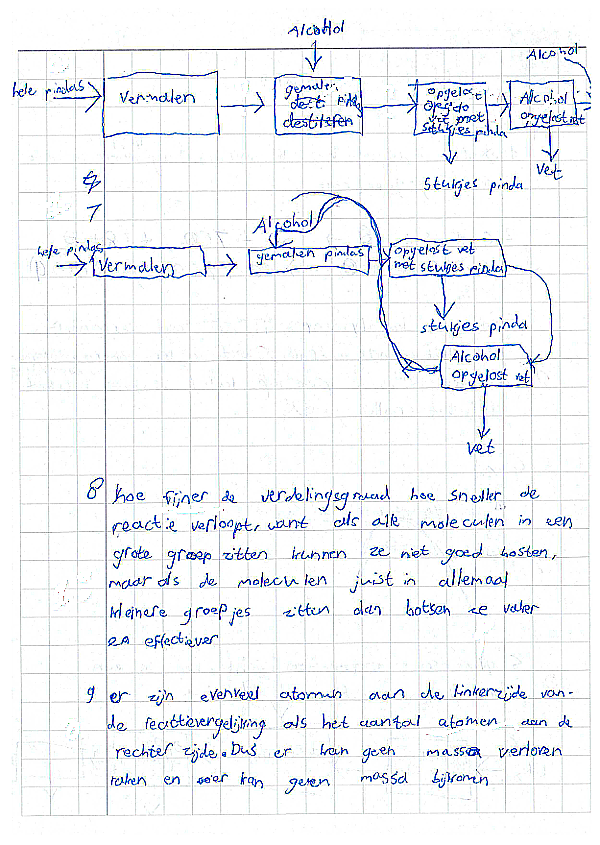 Alcohol
Alcohol
hele pindas
Vermalen
gemalen
pinda
opgelost
vet met
stukjes pinda
Alcohol
opgelost vet
Stukjes pinda
Vet
7
Alcohol
hele pindas
Vermalen
gemalen pindas
opgelost vet
met stukjes pinda
stukjes pinda
Alcohol
opgelost vet
vet
8 hoe fijner de verdelingsgraad hoe sneller de
reactie verloopt, want als alle moleculen in een
grote groep zitten kunnen ze niet goed bosten,
maar als de moleculen juist in allemaal
kleinere groepjes zitten dan botsen ze vaker
en effectiever
9 er zijn evenveel atomen aan de linkerzijde van
de reactievergelijking als het aantal atomen aan de
rechter zijde. Dus er kan geen massa verloren
raken en er kan geen massa bijkomen